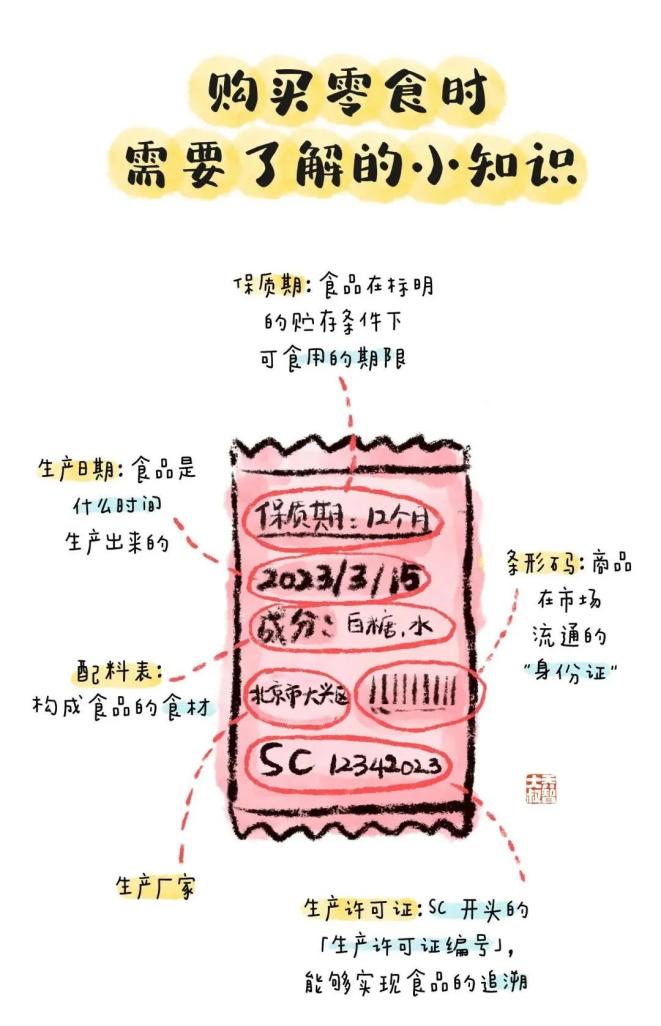 购买零食时
需要了解的小知识
保质期:食品在标明
的贮存条件下
可食用的期限
生产日期:食品是
什么时间
生产出来的
保质期:12个月
2023/3/15
成分:白糖,水
条形码:商品
在市场
流通的
“身份证”
配料表:
构成食品的食材
北京市大兴区
SC 12342023
生产厂家
生产许可证:SC 开头的
「生产许可证编号」,
能够实现食品的追溯